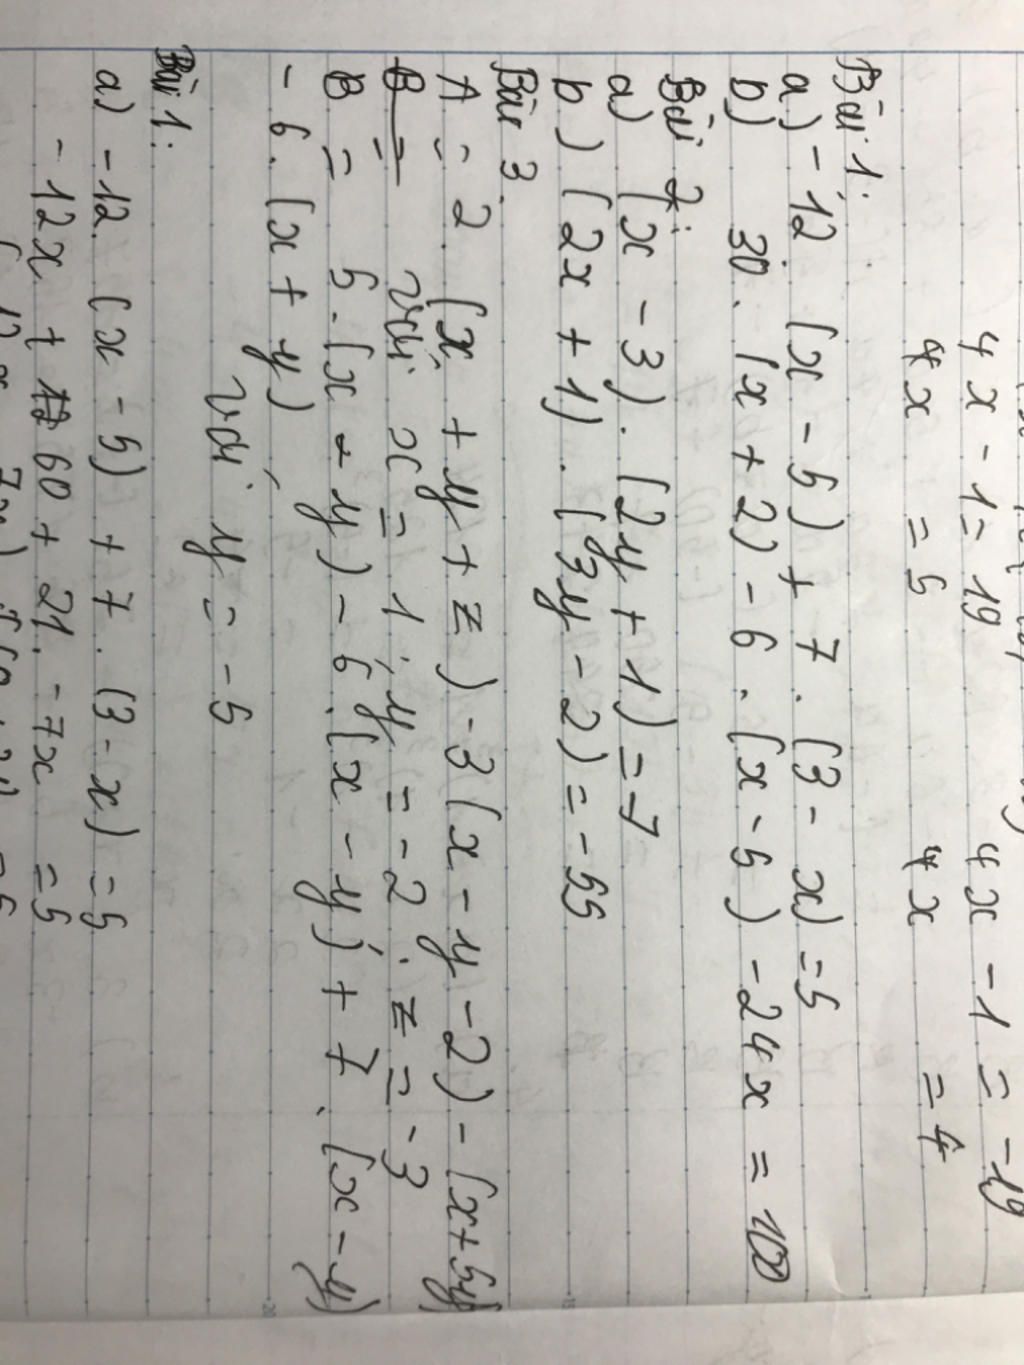 4x - 1 = 19 4x - 1 = -19
4x = 5 4x = 4
Bài 1:
a) - 12. (x - 5) + 7. (3 - x) = 5
b) 30. (x + 2) - 6. (x - 5) - 24x = 100
Bài 2:
a) (x - 3). (2y + 1) = 7
b) (2x + 1). (3y - 2) = -55
Bài 3.
A = 2 (x + y + z) - 3 (x - y - 2) - (x + 5y)
với x = 1; y = -2; z = -3
B = 5. (x - y) - 6. (x - y) + 7. (x - y)
- 6. (x + y)
với y = -5
Bài 1:
a) -12. (x - 5) + 7. (3 - x) = 5
- 12x + 60 + 21 - 7x = 5